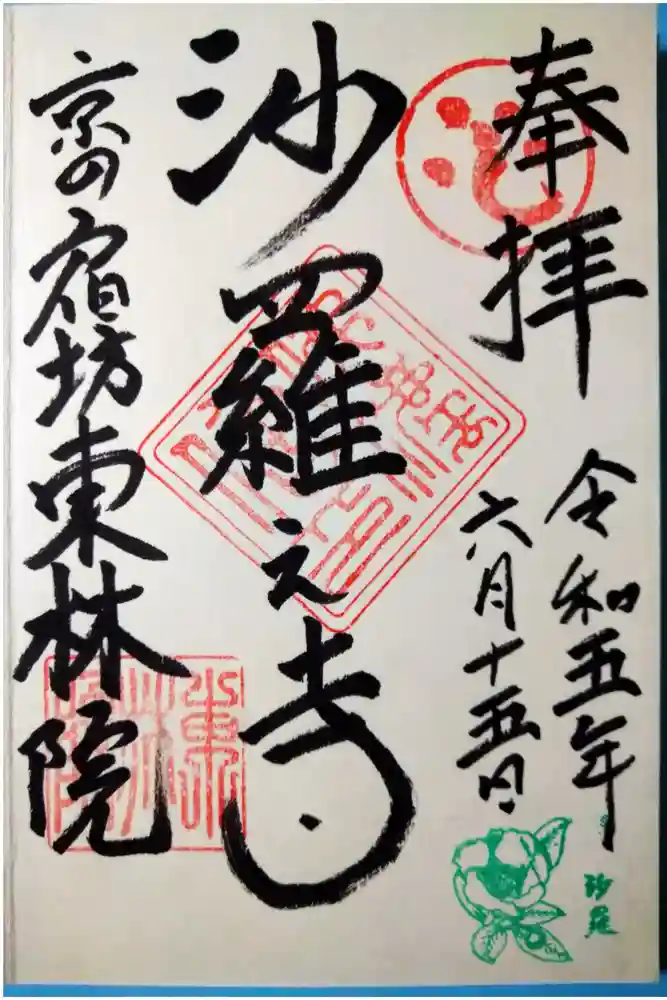 奉拝
令和五年
六月十五日
沙羅之寺
京の宿坊東林院
沙羅